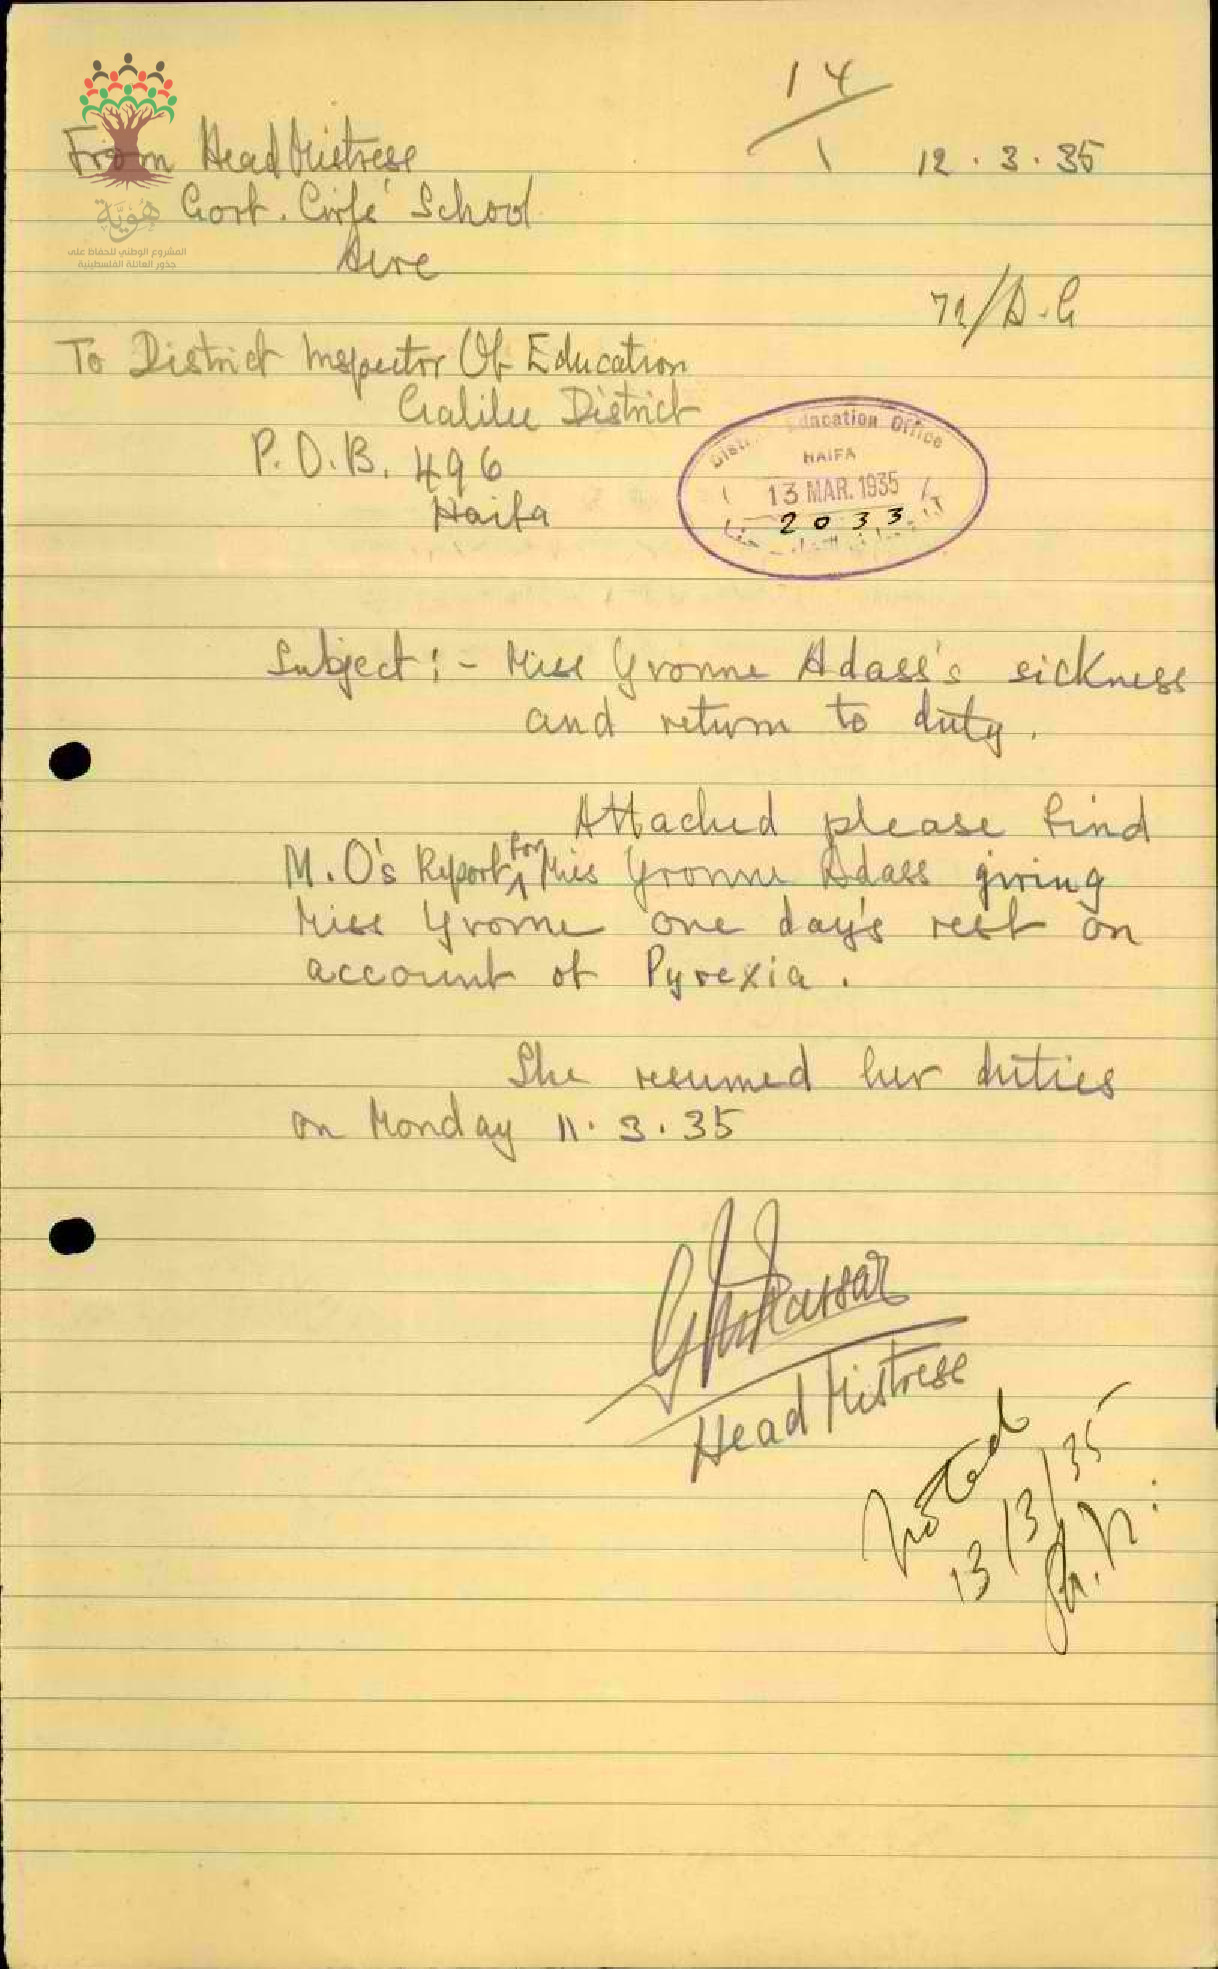 14
1
12.3.35
From Head Mistress
Govt. Girls' School
Acre
هُويَّة
المشروع الوطني للحفاظ على
جذور العائلة الفلسطينية
72/A.G
To District Inspector Of Education
Galilee District
P.O.B. 496
Haifa
Education Office
HAIFA
13 MAR. 1935
2033
حيفا
Subject:- Miss Yvonne Adass's sickness
and return to duty.
Attached please find
M.O's Report for Miss Yvonne Adass giving
Miss Yvonne one day's rest on
account of Pyrexia.
She resumed her duties
on Monday 11.3.35
Head Mistress
Noted
13/3/35